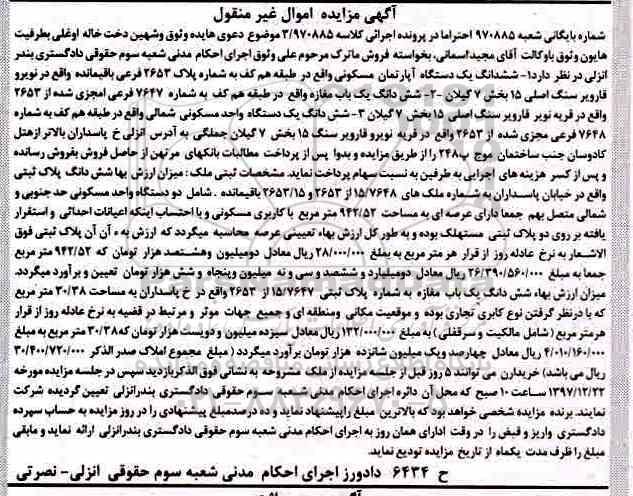 آگهی مزایده اموال غیر منقول
شماره بایگانی شعبه ۹۷۰۸۸۵ احتراما در پرونده اجرائی کلاسه ۳/۹۷۰۸۸۵ موضوع دعوی هایده وثوق وشهین دخت خاله اوغلی بطرفیت
هایون وثوق باوکالت آقای مجید اسمانی، بخواسته فروش ماترک مرحوم علی وثوق اجرای احکام مدنی شعبه سوم حقوقی دادگستری بندر
انزلی در نظر دارد۱- ششدانگ یک دستگاه آپارتمان مسکونی واقع در طبقه هم کف به شماره پلاک ۲۶۵۳ فرعی باقیمانده واقع در نویرو
قارویر سنگ اصلی ۱۵ بخش ۷ گیلان -۲- شش دانگ یک باب مغازه واقع در طبقه هم کف به شماره ۷۶۴۷ فرعی امجزی شده از ۲۶۵۳
واقع در قریه نویر قارویر سنگ اصلی ۱۵ بخش ۷ گیلان ۳- شش دانگ یک دستگاه واحد مسکونی شمالی واقع در طبقه هم کف به شماره
۷۶۴۸ فرعی مجزی شده از ۲۶۵۳ واقع در قریه نویرو قارویر سنگ ۱۵ بخش ۷ گیلان جملگی به آدرس انزلی خ پاسداران بالاتر ازهتل
کادوسان جنب ساختمان موج پ۲۴۸ را از طریق مزایده و بدوا پس از پرداخت مطالبات بانکهای مرتهن از حاصل فروش بفروش رسانده
و پس از کسر هزینه های اجرایی به طرفین به نسبت سهام پرداخت نماید. مشخصات ثبتی ملک: میزان ارزش بها شش دانگ پلاک ثبتی
واقع در خیابان پاسداران به شماره ملک های ۱۵/۷۶۴۸ از ۲۶۵۳ و ۲۶۵۳/۱۵ باقیمانده . شامل دو دستگاه واحد مسکونی حد جنوبی و
شمالی متصل بهم جمعا دارای عرصه ای به مساحت ۹۴۲/۵۲ متر مربع با کاربری مسکونی و با احتساب اینکه اعیانات احداثی و استقرار
یافته بر روی دو پلاک ثبتی مستهلک بوده و به طور کل ارزش بهاء تعیینی عرصه محاسبه میگردد که ارزش بهء آن آن پلاک ثبتی فوق
الاشعار به نرخ عادله روز از قرار هر متر مربع به بمبلغ ۲۸/۰۰۰/۰۰۰ ریال معادل دومیلیون وهشتصد هزار تومان که ۹۴۲/۵۲ متر مربع
جمعا به مبلغ ۲۶/۳۹۰/۵۶۰/۰۰۰ ریال معادل دومیلیارد و ششصد و سی و نه میلیون وپنجاه و شش هزار تومان تعیین و برآورد میگردد.
میزان ارزش بهاء شش دانگ یک باب مغازه به شماره پلاک ثبتی ۱۵/۷۶۴۷ از ۲۶۵۳ واقع در خ پاسداران به مساحت ۳۰/۳۸ متر مربع
که با درنظر گرفتن نوع کابری تجاری بوده و موقعیت مکانی ومنطقه ای و جمیع جهات موثر و مرتبط در قضیه به نرخ عادله روز از قرار
هرمتر مربع (شامل مالکیت و سرقفلی) به مبلغ ۱۳۲/۰۰۰/۰۰۰ ریال معادل سیزده میلیون و دویست هزار تومان که۳۰/۳۸ متر مربع به مبلغ
۴/۰۱۰/۱۶۰/۰۰۰ ریال معادل چهارصد ویک میلیون شانزده هزار تومان برآورد میگردد ( مبلغ مجموع املاک صدر الذکر ۳۰/۴۰۰/۷۲۰/۰۰۰
ریال می باشد) خریدارن می توانند ۵ روز قبل از جلسه مزایده از ملک مشروحه به نشانی فوق الذکربازدید سپس در جلسه مزایده مورخه
۱۳۹۷/۱۲/۲۲ ساعت ۱۰ صبح که محل آن دائره اجرای احکام مدنی شعبه سوم حقوقی دادگستری بندرانزلی تعیین گردیده شرکت
نمایند. برنده مزایده شخصی خواهد بود که بالاترین مبلغ راپیشنهاد نماید و ده درصدمبلغ پیشنهادی را در روز مزایده به حساب سپرده
دادگستری واریز و قبض را در وقت ادارای همان روز به اجرای احکام مدنی شعبه سوم حقوقی دادگستری بندرانزلی ارائه نماید و مابقی
مبلغ را ظرف مدت یکماه از تاریخ مزایده تودیع نماید.
ح ۶۴۳۴ دادورز اجرای احکام مدنی شعبه سوم حقوقی انزلی- نصرتی